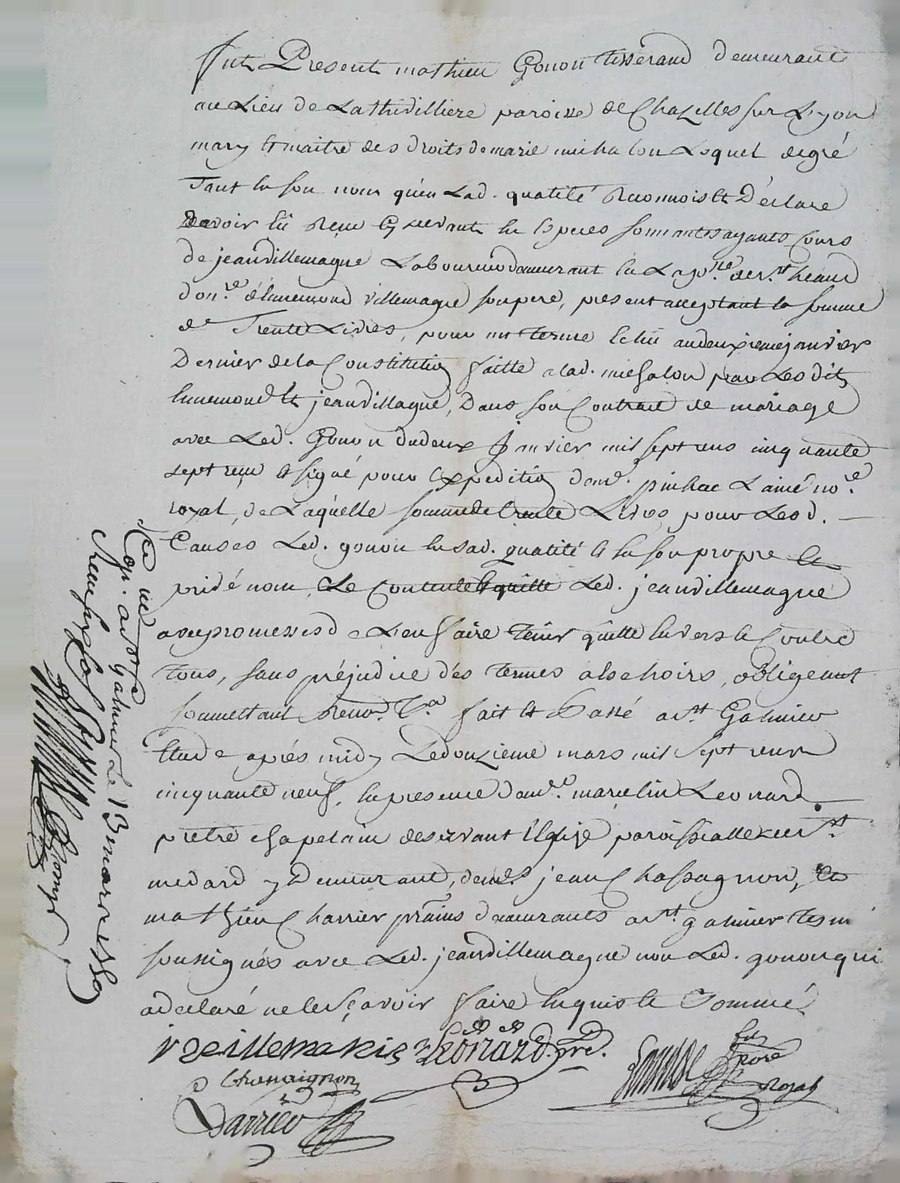 fut Present mathieu Gonon tisserand demeurant
au Lieu de Lathivilliere paroisse de Chazelles sur Lyon
mary et maitre des droits de marie michalon Lequel degré
Tant en son nom qu'en Lad. qualité Reconnoist et Déclare
avoir Reçu en especes sonnantes ayants Cours
de jean villemagne Laboureur demeurant
villemagne son pere, present acceptant la somme
de Trente Livres, pour un terme Echu au deuxieme janvier
Dernier de la Constitution faitte a lad. michalon par Lesdits
ennemond et jean villagne, Dans son Contrat de mariage
avec Led. Gonon du deux janvier mil sept cens cinquante
sept reçu et signé pour expedition L'ainé no.re
royal, de Laquelle somme de trente Livres pour Lesd.
Causes Led. gonon en sad. qualité et en son propre et
privé nom, se Contente et quitte Led. jean villemagne
avec promesses de L'en faire tenir quitte envers et Contre
tous, sans préjudice des termes a Echoirs, obligeant
soumettant renon.t fait et Passé a st Galmier
Etude après midy Le douzieme mars mil sept cens
cinquante neuf, en presence de marcelin Leonard
prêtre chapelain deservant L'Eglise paroissialle de st
medard y Demeurant, jean Chassagnon, et
mathieu Charrier demeurants a st galmier tesm
soussignés avec Led. jean villemagne non Led. gonon qui
a declaré ne le sçavoir faire enquis et sommé
Leonard pre.
Chassaignon
royal
a st Galmier Le 13 mars 1759